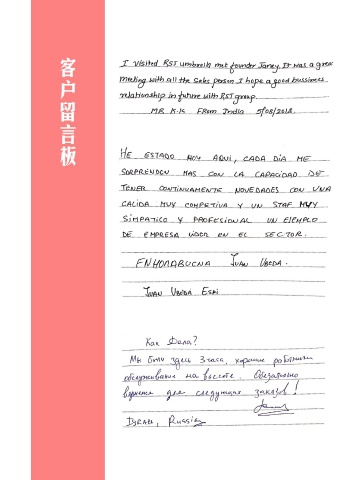 客户留言板
I visited RST umbrella met founder Janey. It was a great
meeting with all the sales person I hope a good bussiness
relationship in future with RST group.
MR K.K From India 5/08/2018.
HE ESTADO HOY AQUI, CADA DIA ME
SORPRENDEN MAS CON LA CAPACIDAD DE
TENER CONTINUAMENTE NOVEDADES CON UNA
CALIDA MUY COMPETIVA Y UN STAF MUY
SIMPATICO Y PROFESIONAL UN EJEMPLO
DE EMPRESA LIDER EN EL SECTOR.
ENHORABUENA JUAN UBEDA.
JUAN UBEDA
Как Дела?
Мы были здесь 3 часа, хорошие работники
обслуживание на высоте. Обязательно
вернемся для следующих заказов!
Russia